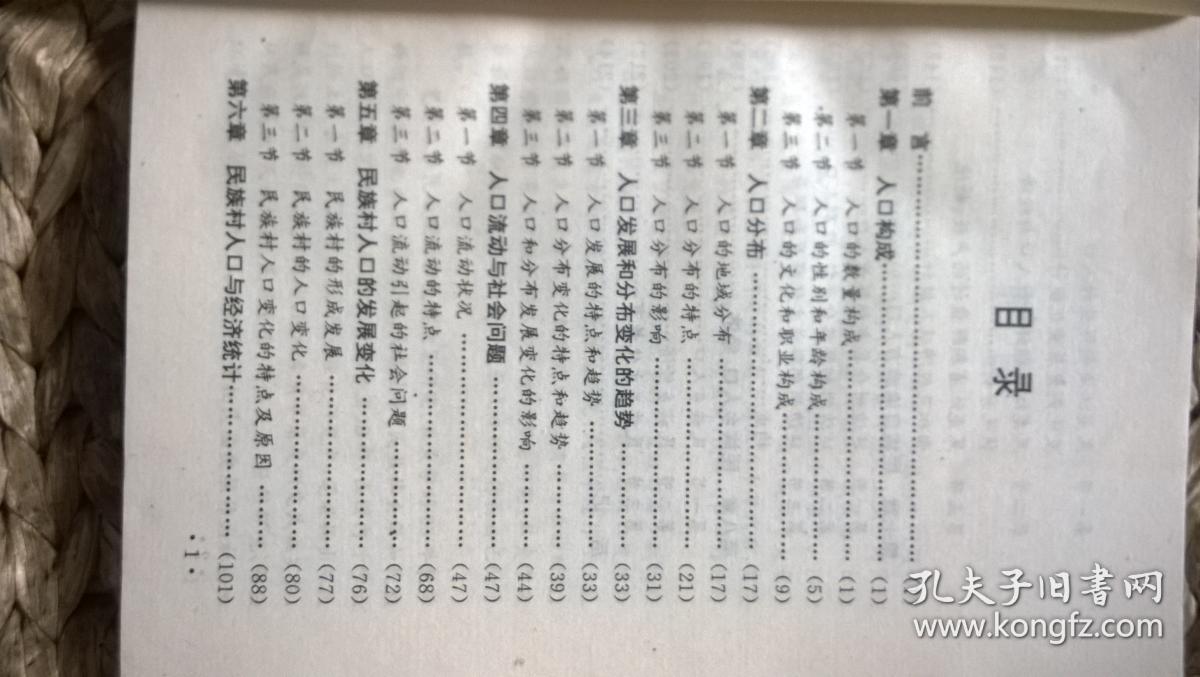 目录
前 言……………………………………
第一章 人口构成……………………(1)
第一节 人口的数量构成……………(1)
第二节 人口的性别和年龄构成……(5)
第三节 人口的文化和职业构成……(9)
第二章 人口分布……………………(17)
第一节 人口的地域分布……………(17)
第二节 人口分布的特点……………(21)
第三节 人口分布的影响……………(31)
第三章 人口发展和分布变化的趋势……(33)
第一节 人口发展的特点和趋势……(33)
第二节 人口分布变化的特点和趋势……(39)
第三节 人口和分布发展变化的影响……(44)
第四章 人口流动与社会问题………(47)
第一节 人口流动状况………………(47)
第二节 人口流动的特点……………(68)
第三节 人口流动引起的社会问题……(72)
第五章 民族村人口的发展变化……(76)
第一节 民族村的形成发展…………(77)
第二节 民族村的人口变化…………(80)
第三节 民族村人口变化的特点及原因……(88)
第六章 民族村人口与经济统计……(101)
·1·
孔夫子旧书网
www.kongfz.com